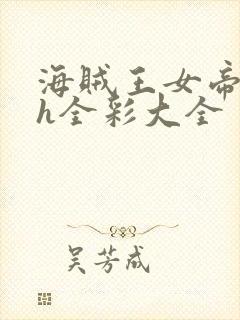 海贼王女帝
h全彩大全
吴芳成